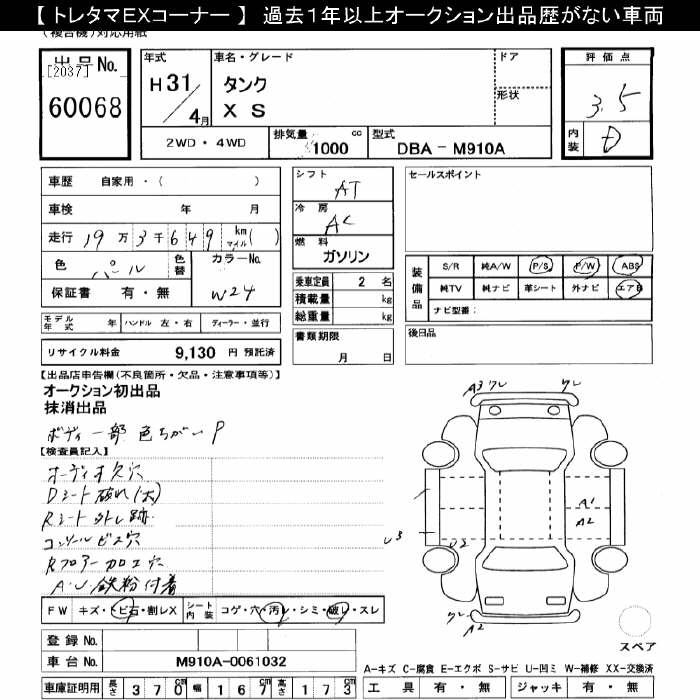 【 トレタマEXコーナー 】 過去１年以上オークション出品歴がない車両
(複合機)対応用紙
出 品 No.
[2037]
60068
年式
H 31/4月
車名・グレード
タンク
X S
ドア
形状
2WD・4WD
排気量 1000 cc
型式 DBA - M910A
評 価 点
3.5
内装 D
車歴 自家用・( )
車検 年 月
走行 19万3千649 km マイル( )
色 パール
色替
カラーNo. W24
保証書 有・無
モデル年式 年 ハンドル 左・右 ディーラー・並行
リサイクル料金 9,130 円 預託済
シフト AT
冷房 AC
燃料 ガソリン
乗車定員 2 名
積載量 kg
総重量 kg
書類期限
月 日
セールスポイント
装備品
S/R 純A/W P/S P/W ABS
純TV 純ナビ 革シート 外ナビ エアB
ナビ型番:
後日品
【出品店申告欄(不良箇所・欠品・注意事項等)】
オークション初出品
抹消出品
ボディ一部 色ちがい P
【検査員記入】
オーディオ欠穴
Dシート破れ(大)
Rシート外し跡
コンソールビス穴
Rフロアー加工穴
A・U 鉄粉付着
FW キズ・トビ石・割レX
シート内装 コゲ・穴・汚レ・シミ・破レ・スレ
登録 No.
車台 No. M910A-0061032
車庫証明用 長さ 370 cm 幅 167 cm 高さ 173 cm
A3 クレ
クレ
A1
A2
U3
U2
クレ
A2
スペア
A-キズ C-腐食 E-エクボ S-サビ U-凹ミ W-補修 XX-交換済
工 具 有・無 ジャッキ 有・無